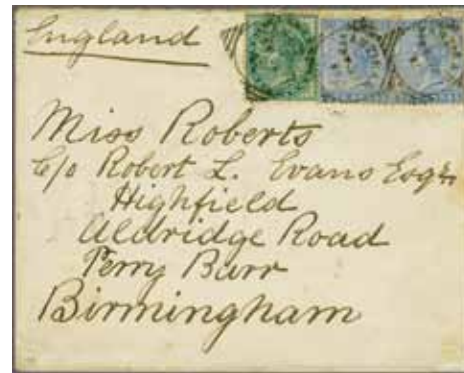 England
Miss Roberts
C/o Robert L. Evans Esqre
Highfield
Aldridge Road
Perry Barr
Birmingham